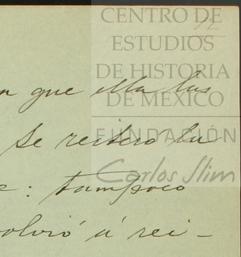 CENTRO DE
ESTUDIOS
DE HISTORIA
DE MÉXICO
FUNDACIÓN
Carlos Slim
que ella las
se reitero la
: tampoco
volvió á rei-